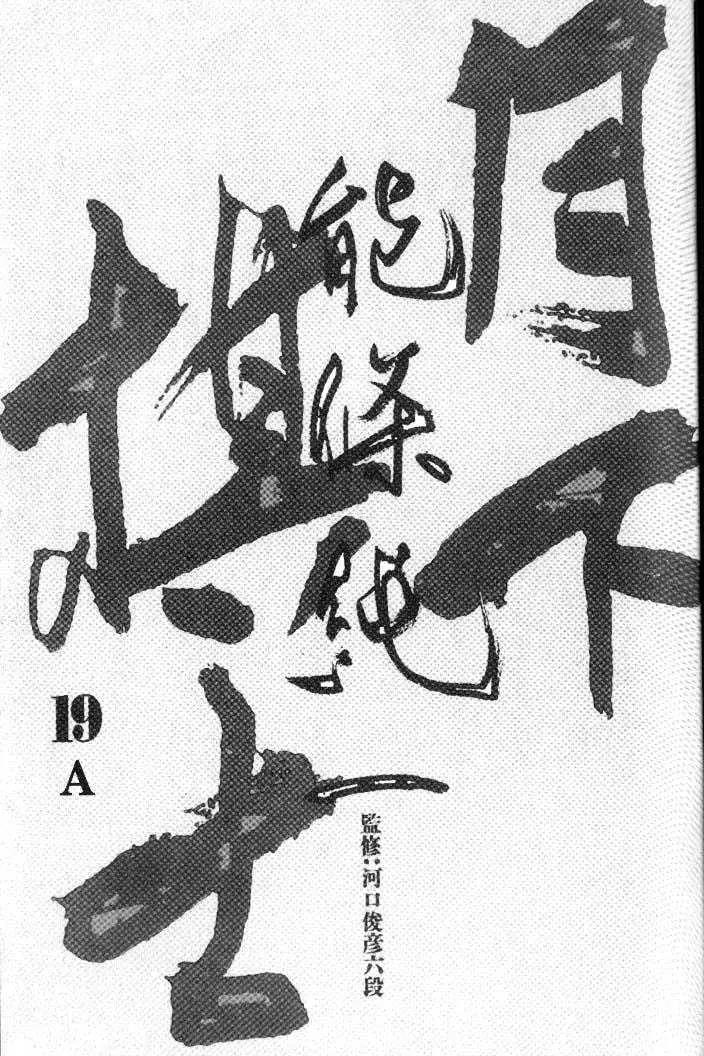 月下の
棋士
能條純一
監修:河口俊彦六段
19
A